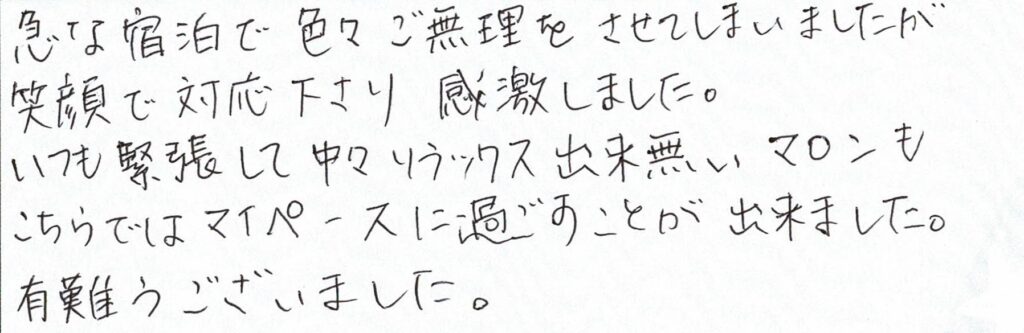 急な宿泊で色々ご無理をさせてしまいましたが
笑顔で対応下さり 感激しました。
いつも緊張して中々リラックス出来無いマロンも
こちらではマイペースに過ごすことが出来ました。
有難うございました。